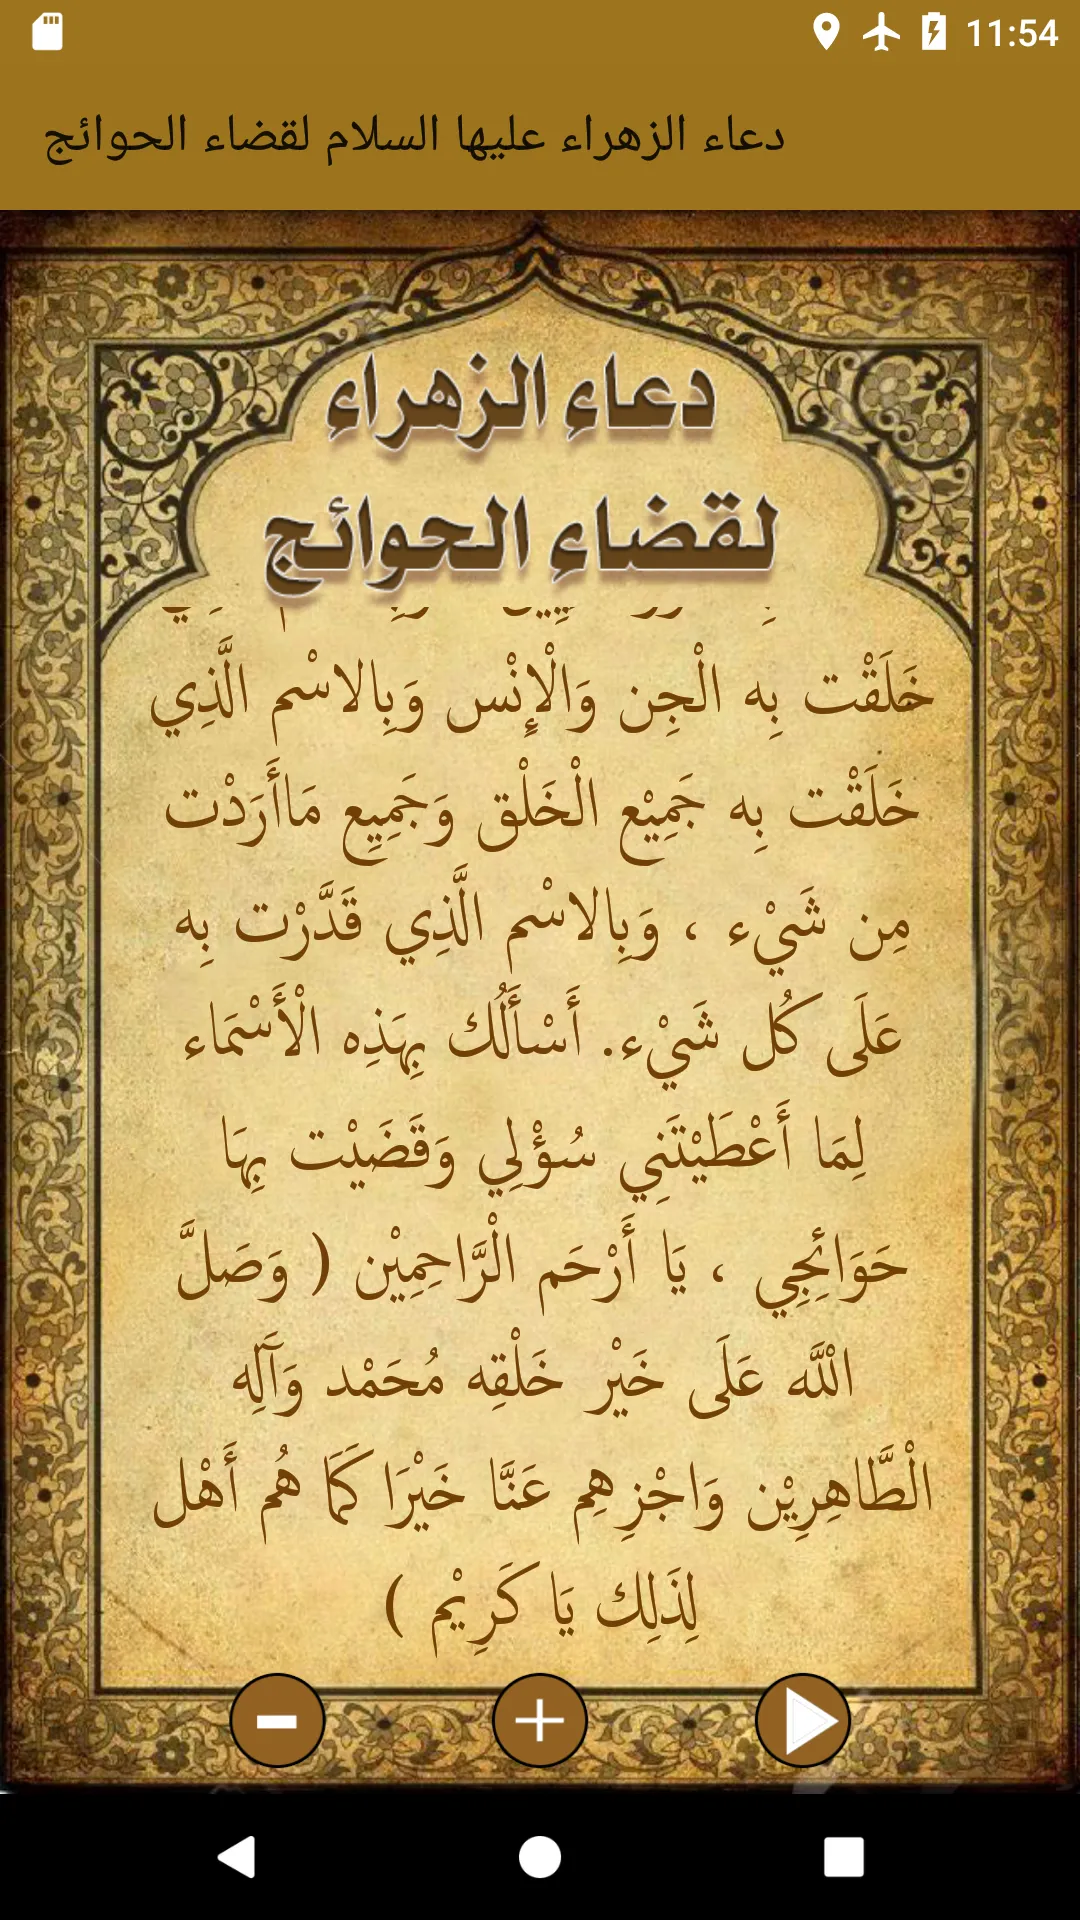 11:54
دعاء الزهراء عليها السلام لقضاء الحوائج
دعاء الزهراء
لقضاء الحوائج
خَلَقْت بِه الْجِن وَالْإِنْس وَبِالاسْم الَّذِي
خَلَقْت بِه جَمِيْع الْخَلْق وَجَمِيِع مَاأَرَدْت
مِن شَيْء ، وَبِالاسْم الَّذِي قَدَّرْت بِه
عَلَى كُل شَيْء. أَسْأَلُك بِهَذِه الْأَسْمَاء
لِمَا أَعْطَيْتَنِي سُؤْلِي وَقَضَيْت بِهَا
حَوَائِجِي ، يَا أَرْحَم الْرَّاحِمِيْن ( وَصَلَّ
الْلَّه عَلَى خَيْر خَلْقِه مُحَمْد وَآَلِه
الْطَّاهِرِيْن وَاجْزِهِم عَنَّا خَيْرَا كَمَا هُم أَهْل
لِذَلِك يَا كَرِيْم )